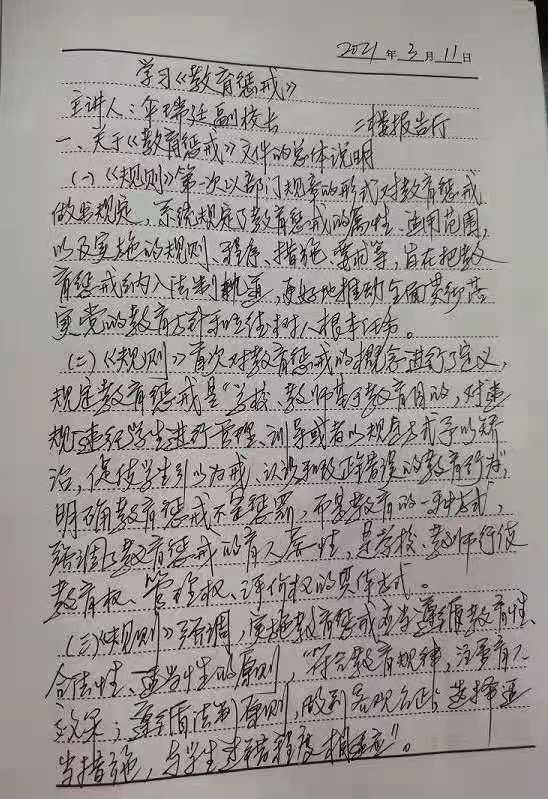 2021年3月11日
学习《教育惩戒》
主讲人：牟瑞廷副校长 二楼报告厅
一、关于《教育惩戒》文件的总体说明
(一)《规则》第一次以部门规章的形式对教育惩戒
做出规定，系统规定了教育惩戒的属性、适用范围，
以及实施的规则、程序、措施、要求等，旨在把教
育惩戒纳入法制轨道，更好地推动全面贯彻落
实党的教育方针和立德树人根本任务。
(二)《规则》首次对教育惩戒的概念进行了定义，
规定教育惩戒是“学校、教师基于教育目的，对违
规违纪学生进行管理、训导或者以规定方式予以矫
治，促使学生引以为戒、认识和改正错误的教育行为”，
明确教育惩戒不是惩罚，而是教育的一种方式，
强调了教育惩戒的育人属性，是学校、教师行使
教育权、管理权、评价权的具体方式。
(三)《规则》强调，实施教育惩戒应当遵循教育性、
合法性、适当性的原则，“符合教育规律，注重育人
效果；遵循法制原则，做到客观公正；选择适
当措施，与学生过错程度相适应”。